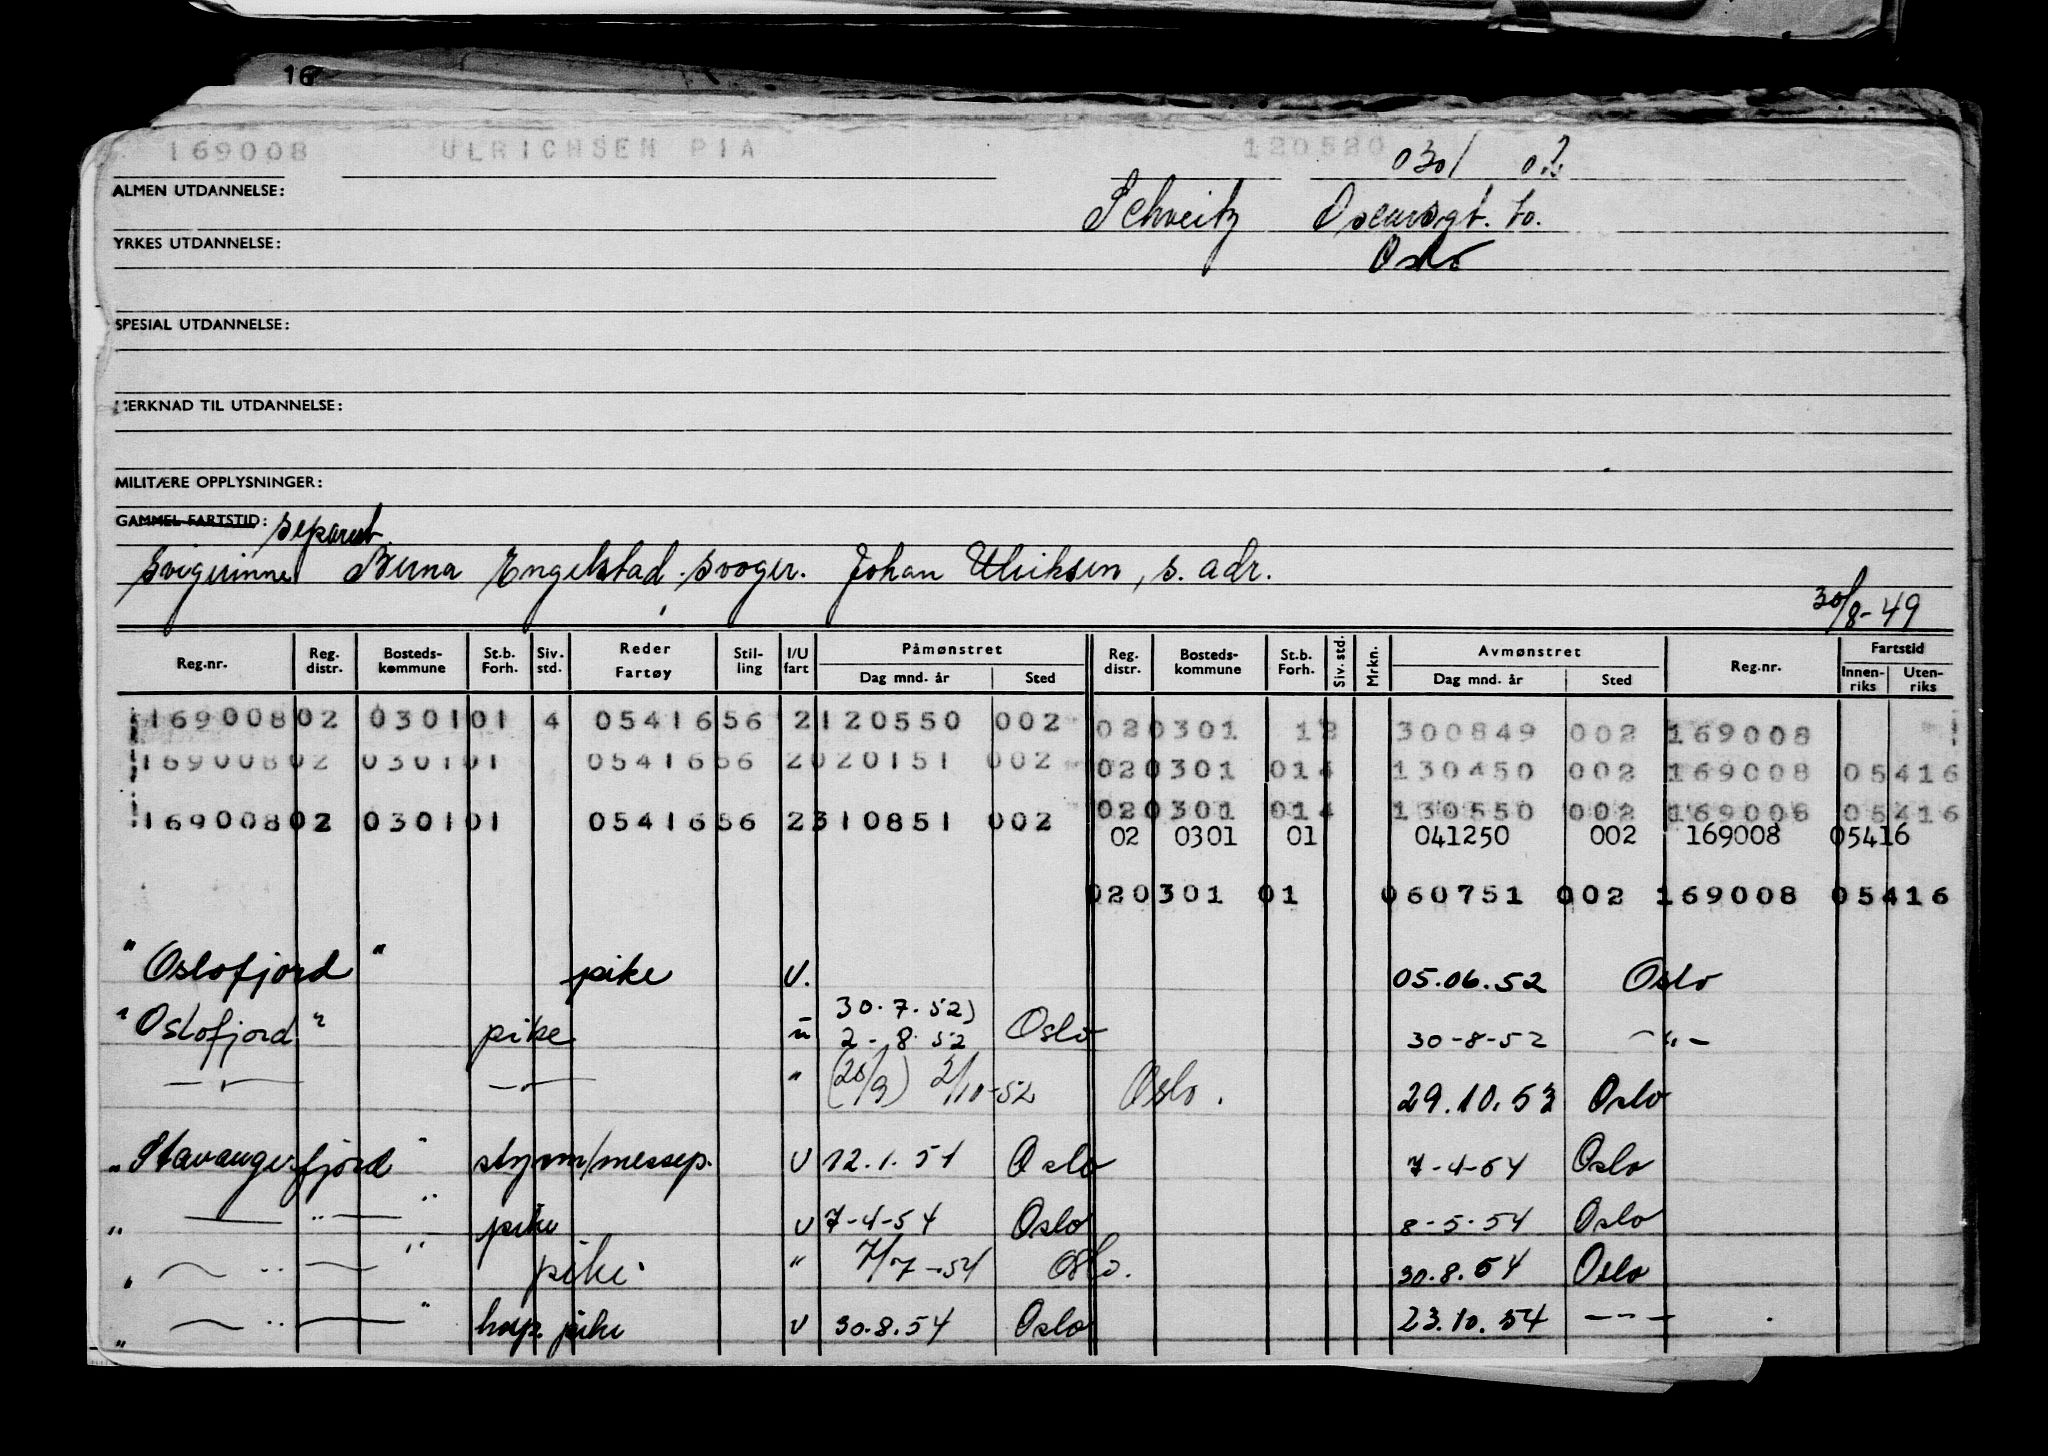 16
169008 ULRICHSEN PIA 120520 0301 02
ALMEN UTDANNELSE: Schveitz Oscarsgt. 10.
YRKES UTDANNELSE: Oslo
SPESIAL UTDANNELSE:
MERKNAD TIL UTDANNELSE:
MILITÆRE OPPLYSNINGER:
GAMMEL FARTSTID: separert.
Svigerinne Berna Engelstad. Svoger. Johan Ulriksen, s. adr.
30/8-49
Reg.nr. Reg. distr. Bosteds-kommune St.b. Forh. Siv. std. Reder Fartøy Stil-ling I/U fart Påmønstret Dag mnd. år Sted Reg. distr. Bosteds-kommune St.b. Forh. Siv. std. Mrkn. Avmønstret Dag mnd. år Sted Reg.nr. Fartstid Innen-riks Uten-riks
169008 02 0301 01 4 05416 56 2 120550 002 02 0301 12 300849 002 169008
169008 02 0301 01 05416 56 2 020151 002 02 0301 014 130450 002 169008 05416
169008 02 0301 01 05416 56 2 310851 002 02 0301 014 130550 002 169008 05416
02 0301 01 041250 002 169008 05416
02 0301 01 060751 002 169008 05416
"Oslofjord" pike U. 05.06.52 Oslo
"Oslofjord" pike u 30.7.52) 2-8.52 Oslo 30-8-52 -"-
-"- -"- " (26/9) 2/10-52 Oslo. 29.10.53 Oslo
"Stavangerfjord" styrm/messep. U 12.1.54 Oslo 7-4-54 Oslo
" -"- " pike U 7-4-54 Oslo 8-5-54 Oslo
" -"- " pike. " 7/7-54 Oslo. 30.8.54 Oslo
" -"- " hosp. pike U 30.8.54 Oslo 23.10.54 ---